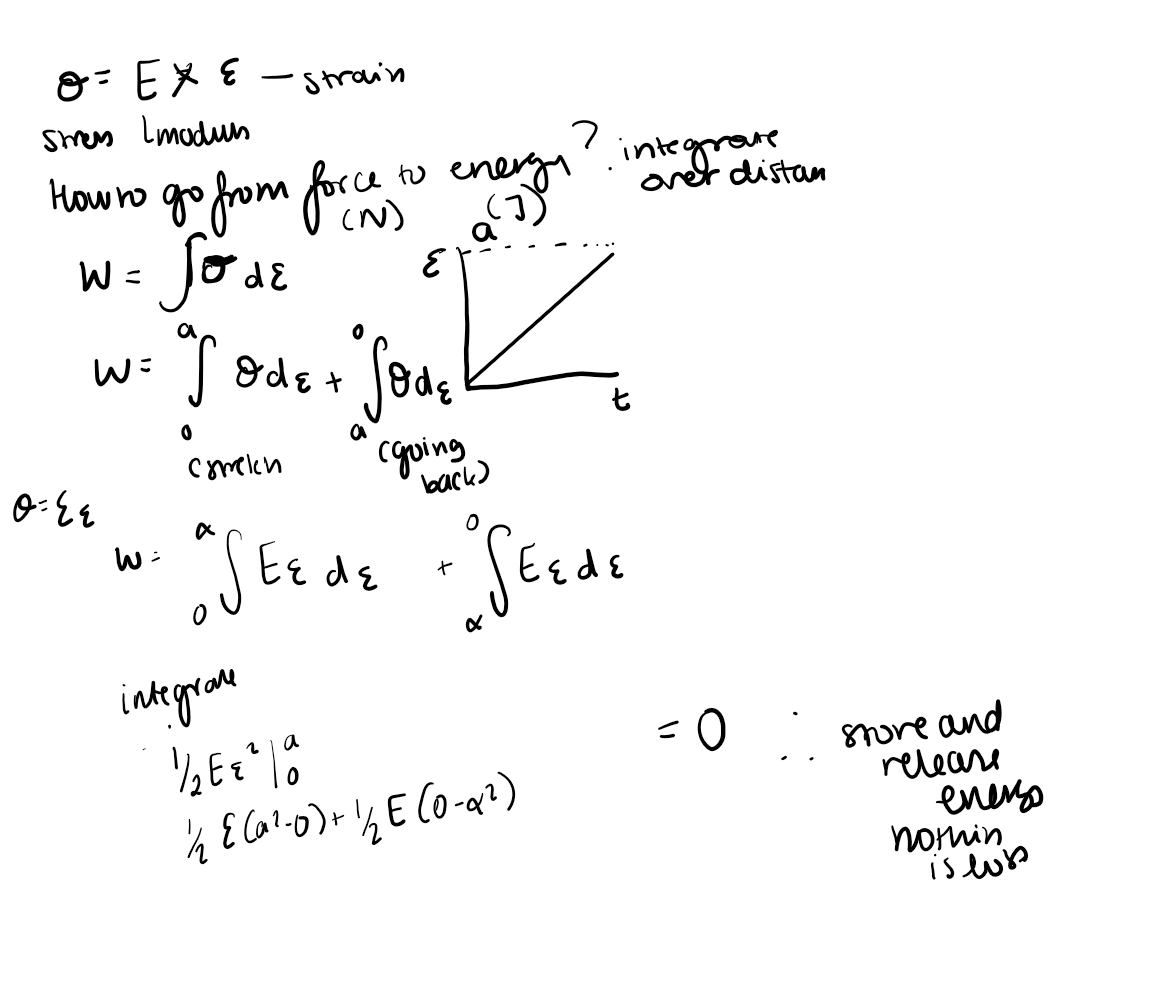 σ = E × ε — strain
stress modulus
How to go from force to energy? integrate
(N) (J) over distan
W = ∫σ dε
a
ε
t
W = a∫0 σdε + 0∫a σdε
(stretch (going
back)
σ=Eε
W = α∫0 Eε dε + 0∫α Eε dε
integrate
1/2 Eε² |a 0
1/2 E(a²-0) + 1/2 E (0-α²)
= 0 ∴ store and
release
energy
nothin
is loss